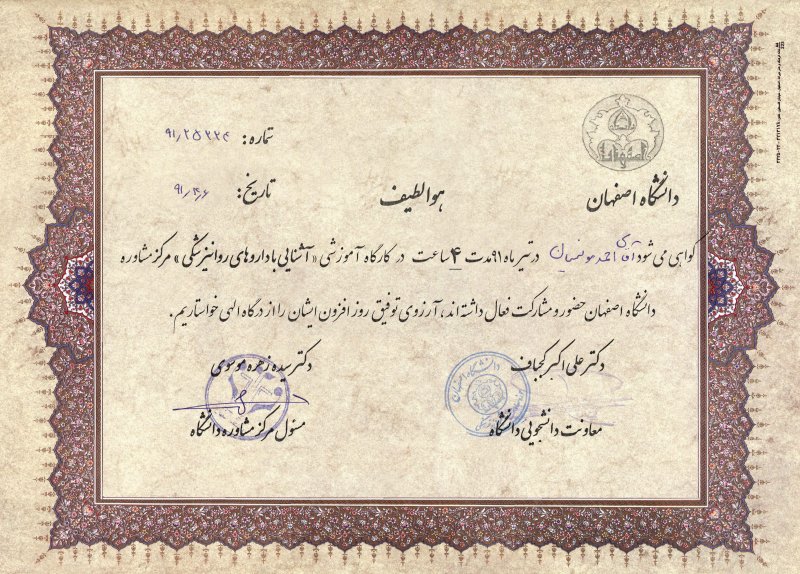 شماره: ۹۱٫۲۵۲۲۴
دانشگاه اصفهان
هوالطیف
تاریخ: ۹۱٫۴٫۶
گواهی می شود آقای احمد مونسیان در تیر ماه ۹۱ مدت ۴ ساعت در کارگاه آموزشی «آشنایی با داروهای روانپزشکی» مرکز مشاوره
دانشگاه اصفهان حضور و مشارکت فعال داشته اند، آرزوی توفیق روز افزون ایشان را از درگاه الهی خواستاریم.
دکتر علی اکبر کجباف
دکتر سیده زهره موسوی
معاونت دانشجویی دانشگاه
مسئول مرکز مشاوره دانشگاه